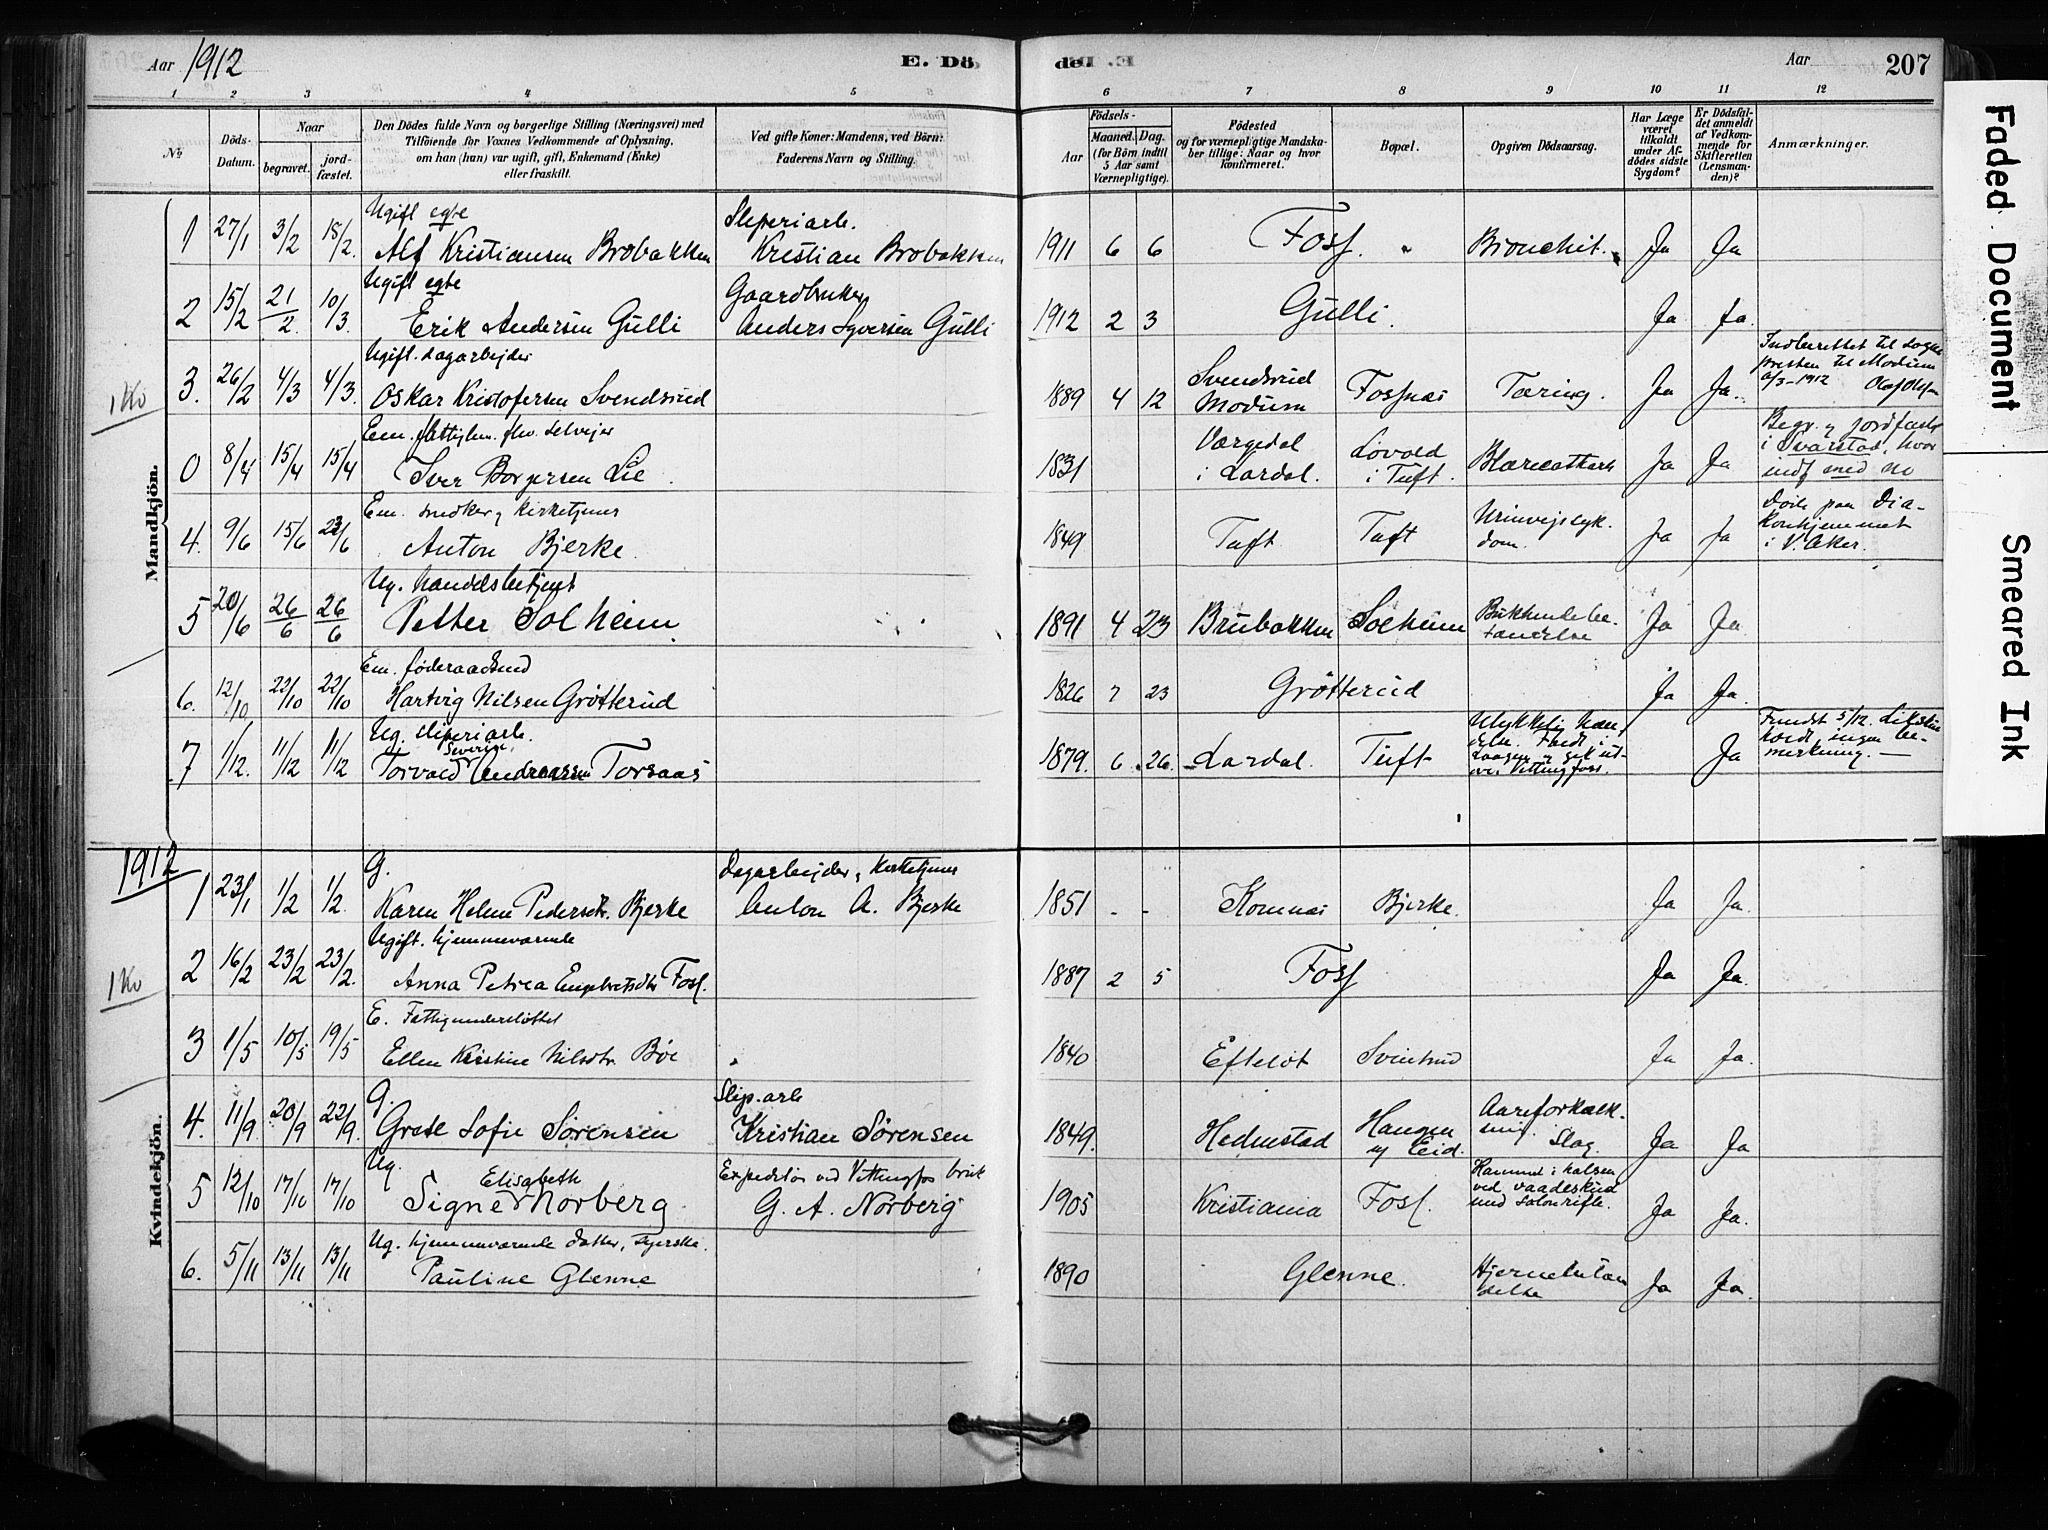 Aar 1912
E. Dö
de.
Aar
207
1 2 3 4 5 6 7 8 9 10 11 12
No.
Döds-Datum.
Naar
begravet.
jord-fæstet.
Den Dödes fulde Navn og borgerlige Stilling (Næringsvei) med
Tilföiende for Voxnes Vedkommende af Oplysning,
om han (hun) var ugift, gift, Enkemand (Enke)
eller fraskilt.
Ved gifte Koner: Mandens, ved Börn:
Faderens Navn og Stilling.
Födsels-
Aar
Maaned.
Dag.
(for Börn indtil
5 Aar samt
Værnepligtige).
Födested
og for værnepligtige Mandska-
ber tillige: Naar og hvor
konfirmeret.
Bopæl.
Opgiven Dödsaarsag.
Har Læge
været
tilkaldt
under Af-
dödes sidste
Sygdom?
Er Dödsfal-
det anmeldt
af Vedkom-
mende for
Skifteretten
(Lensman-
den)?
Anmærkninger.
Mandkjön.
1 27/1 3/2 18/2. Ugift egte
Alf Kristiansen Brobakken
Sliperiarb.
Kristian Brobakken
1911 6 6 Foss. Bronchit. Ja Ja
2 15/2 21/2 10/3. Ugift egte
Erik Andersen Gulli
Gaardbruker
Anders Syversen Gulli
1912 2 3 Gulli. Ja Ja
1 Ko
3. 26/2 4/3 4/3. Ugift. Dagarbejder
Oskar Kristofersen Svendsrud
1889 4 12 Svendsrud
Modum
Fossnæs Tæring. Ja Ja.
Indberettet til Sogne
presten til Modum
1912 Olaf Olsen
0 8/4 15/4 15/4 Em. fattiglem. fhv. selvejer
Iver Borgersen Lie.
1831 Værgedal
i Lardal.
Løvold
i Tuft.
Blærecatharh Ja Ja
Begr. og jordfæstet
i Svarstad, hvor
indf med no
4. 9/6 15/6 23/6 Em. snedker og kirketjener
Anton Bjerke.
1849 Tuft Tuft Urinvejssyk-
dom. Ja Ja
Døde paa Dia-
konhjemmet
i V. Aker.
5 20/6 26/6 26/6 Ug. handelsbetjent
Petter Solheim.
1891 4 23 Brubakken Solheim Bukhindebe-
tændelse Ja Ja
6. 12/10 22/10 22/10 Em. føderaadsmd
Hartvig Nilsen Grøtterud
1826 7 23 Grøtterud Ja Ja.
7 1/12. 11/12 11/12 Ug. sliperiarb.
Torvald Severin Andreassen Torsaas
1879. 6. 26. Lardal. Tuft
Ulykkelig hæn-
delse. Faldt i
Laagen og gik ut-
over Vittingfoss.
Ja
Fundet 5/12. Likskue
holdt, ingen be-
merkning.
1912
Kvindekjön.
1 23/1 1/2 1/2. G.
Karen Helene Pedersdtr. Bjerke
Dagarbejder, Kirketjener
Anton A. Bjerke
1851 - - Komnæs Bjerke. Ja Ja.
1 Ko
2 16/2 23/2 23/2. Ugift. hjemmeværende
Anna Petrea Engebretsdtr Foss.
1887 2 5 Foss Ja Ja.
3 1/5 10/5 19/5 E. Fattigunderstøttet
Ellen Kristine Nilsdtr. Bøe
1840 Efteløt Svinsrud Ja Ja.
4. 11/9 20/9 22/9. G.
Grete Sofie Sørensen
Slip.arb
Kristian Sørensen
1849. Hedenstad Haugen
u/ Eid.
Aareforkalk-
ning. Slag. Ja Ja
5 12/10 17/10 17/10 Ug.
Signe Elisabeth Norberg
Expeditør ved Vittingfos bruk
G. A. Norberg
1905 Kristiania Foss.
Rammet i halsen
ved vaadeskud
med salonrifle. Ja Ja.
6. 5/11 13/11 13/11 Ug. hjemmeværende datter, Syerske.
Pauline Glenne
1890 Glenne. Hjernebetæn
delse Ja Ja.
Faded Document
Smeared Ink